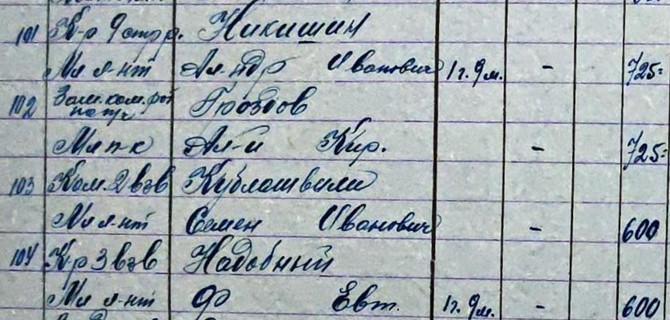 101 К-р 9 стр р. Никишин
Мл л-нт Ал-ндр Иванович 1г. 9м. - 725-
102 Зам. ком. рот Гроздов
Мл п-к Ал-й Кир. - 725-
103 Ком. 2 взв Кублошвили
Мл л-нт Семен Иванович - 600
104 Кр 3 взв Надобный
Мл л-нт Ф Евт. 1г. 9м. - 600